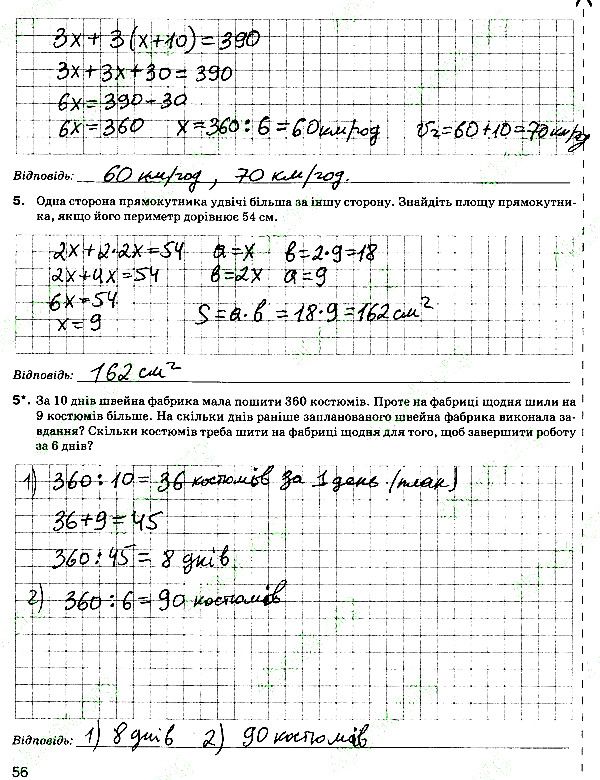 3x + 3(x+10) = 390
3x + 3x + 30 = 390
6x = 390 - 30
6x = 360 x = 360 : 6 = 60 км/год V₂ = 60 + 10 = 70 км/год
Відповідь: 60 км/год, 70 км/год.
5. Одна сторона прямокутника удвічі більша за іншу сторону. Знайдіть площу прямокутни-
ка, якщо його периметр дорівнює 54 см.
2x + 2·2x = 54 a = x b = 2·9 = 18
2x + 4x = 54 b = 2x a = 9
6x = 54
x = 9 S = a·b = 18·9 = 162 см²
Відповідь: 162 см²
5*. За 10 днів швейна фабрика мала пошити 360 костюмів. Проте на фабриці щодня шили на
9 костюмів більше. На скільки днів раніше запланованого швейна фабрика виконала за-
вдання? Скільки костюмів треба шити на фабриці щодня для того, щоб завершити роботу
за 6 днів?
1) 360 : 10 = 36 костюмів за 1 день (план)
36 + 9 = 45
360 : 45 = 8 днів
2) 360 : 6 = 90 костюмів
Відповідь: 1) 8 днів 2) 90 костюмів
56